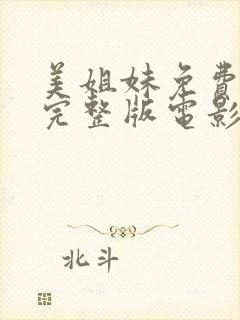 美姐妹免費
完整版電影
北斗